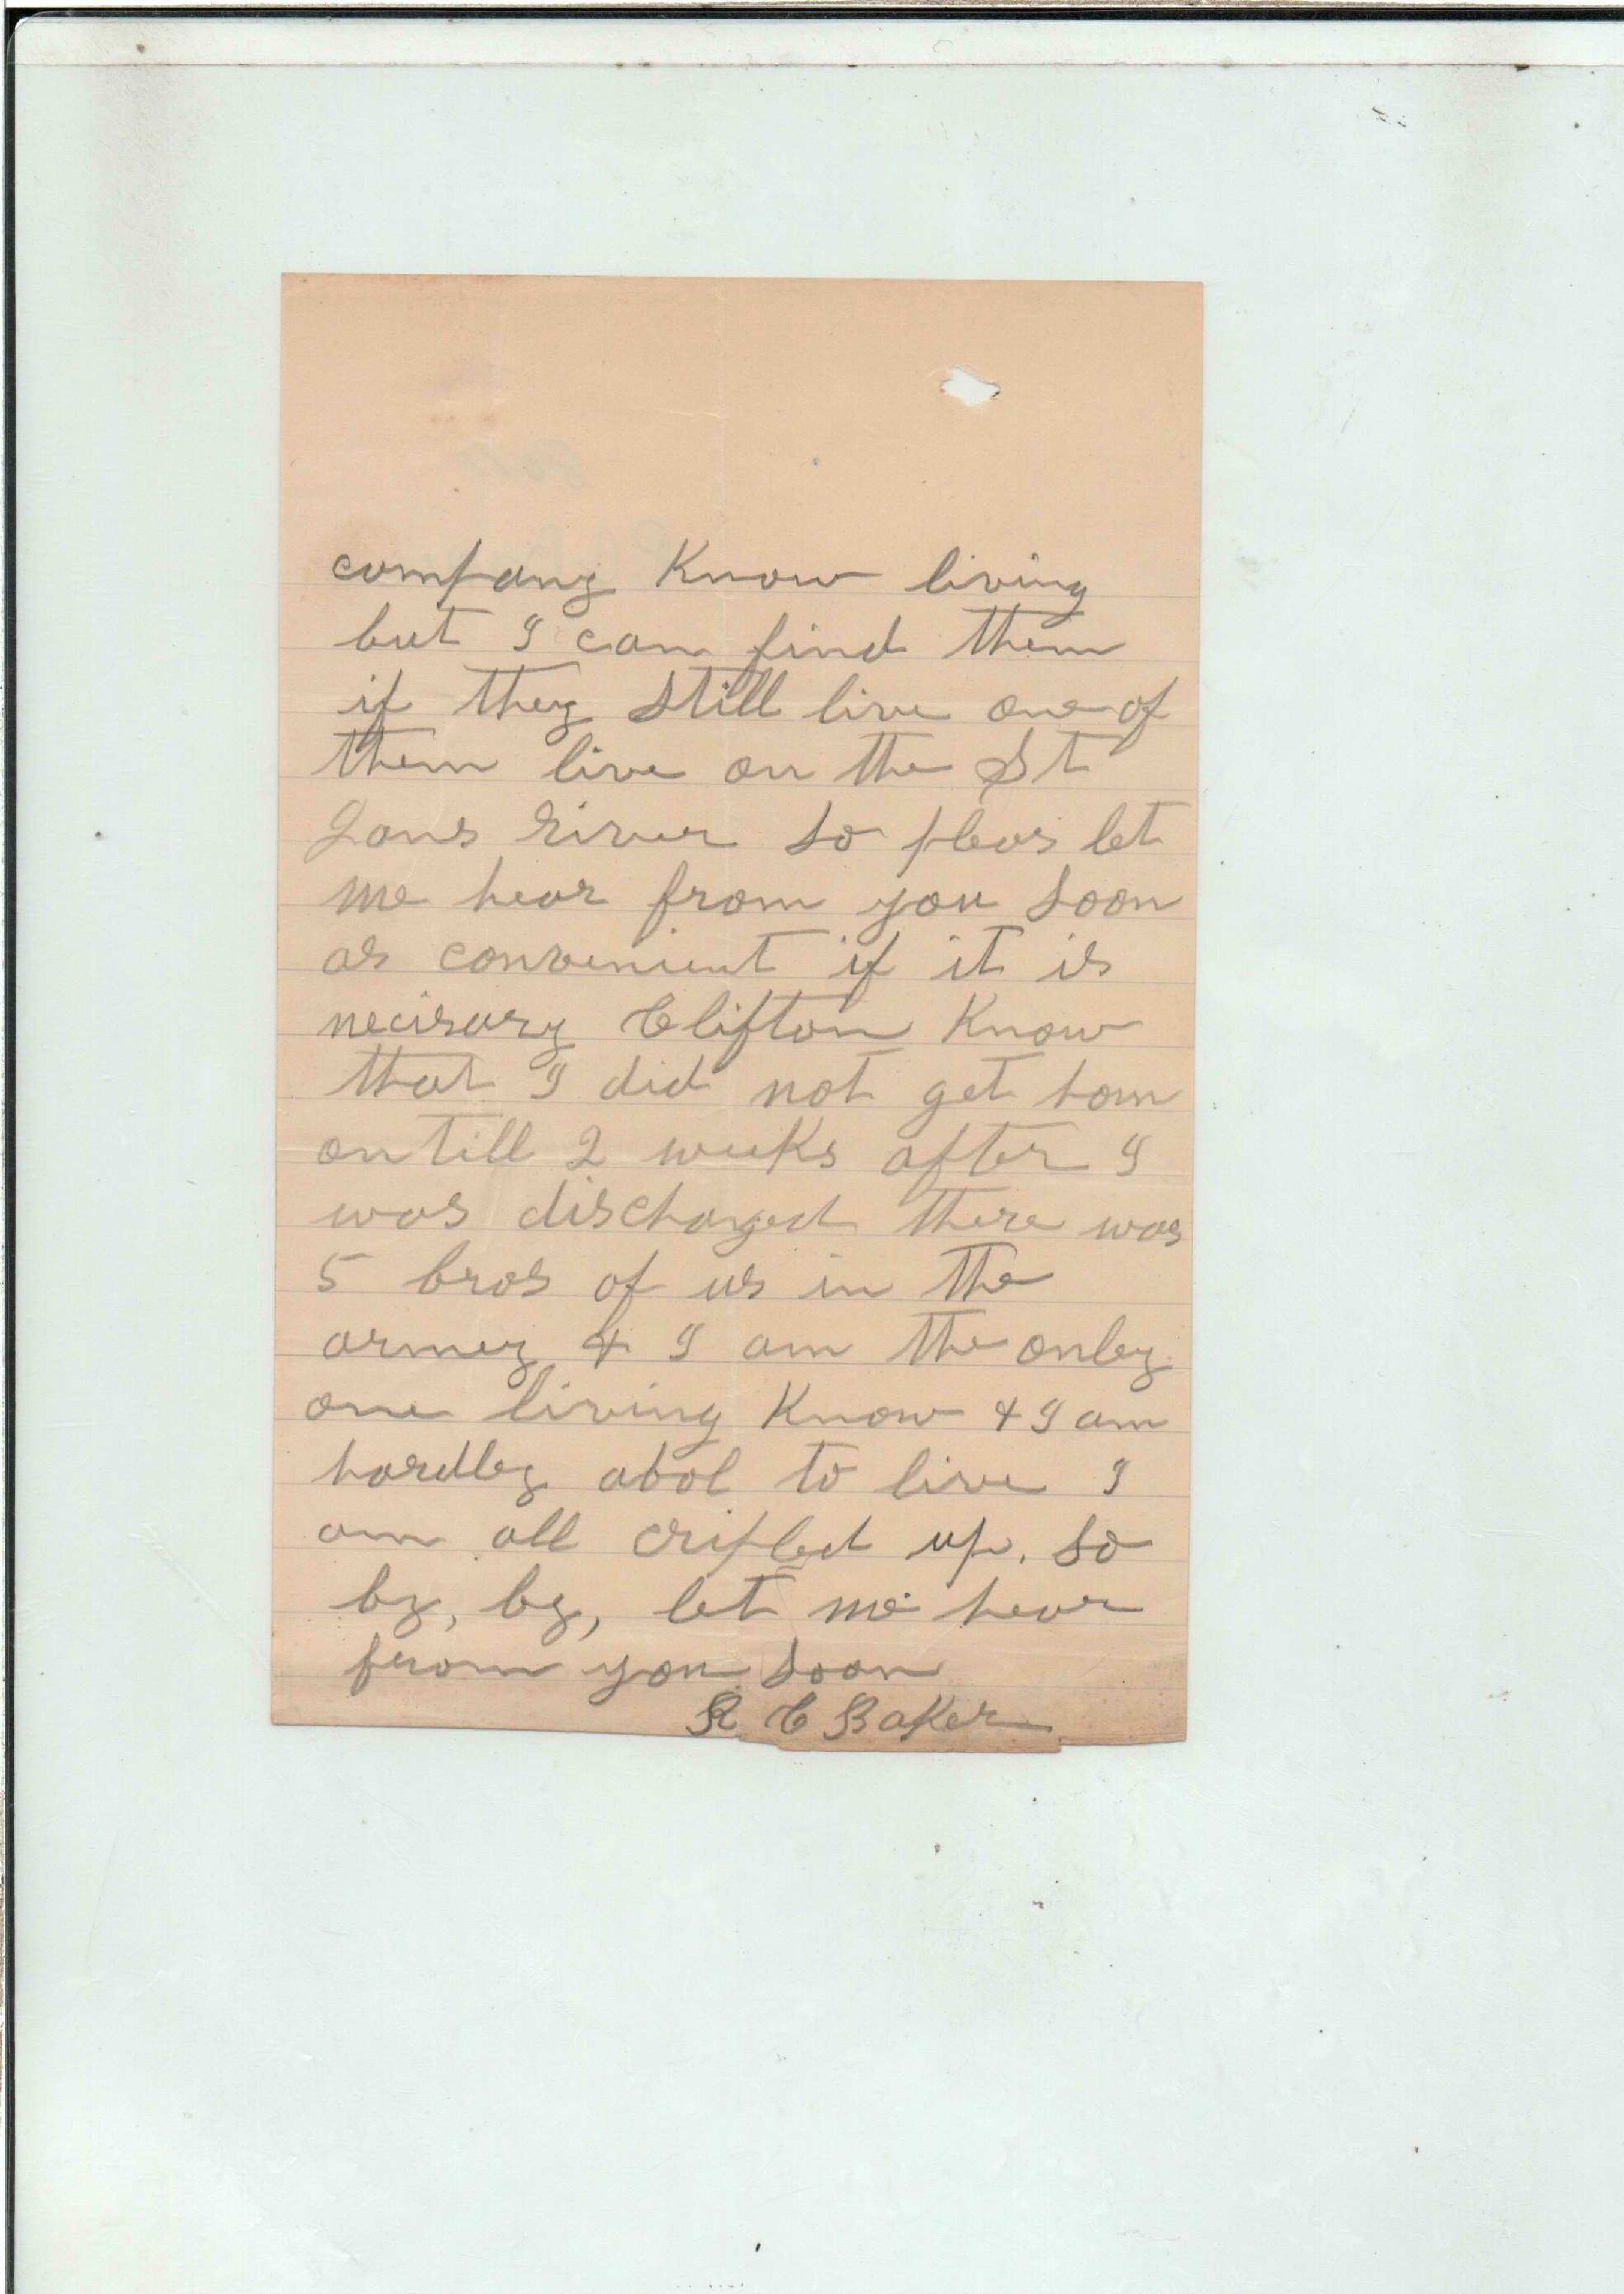 company Know living
but I can find them
if they still live one of
them live on the St
Jans River so pleas let
me hear from you soon
as convenient if it is
necisary Clifton Know
that I did not get hom
on till 2 weeks after I
was discharged there was
5 bros of us in the
armey & I am the onley
one living Know & I am
hardley abol to live I
am all cripled up. so
by, by, let me hear
from you soon
R C Baker